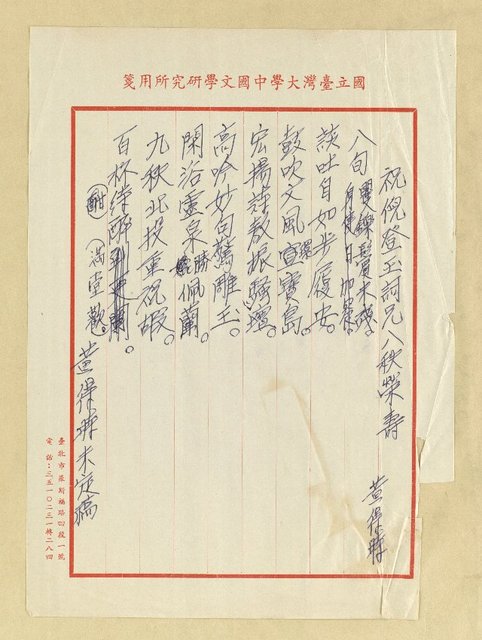 國立臺灣大學中國文學研究所用箋
祝倪登玉詞兄八秩榮壽
黃得時
八旬矍鑠鬢未殘。
談吐自如步履安。
鼓吹文風宣寶島。
宏揚詩教振騷壇。
高吟妙句驚雕玉。
閑浴靈泉勝佩蘭。
九秩北投重祝嘏。
百杯待醉
酣 滿堂歡。
黃得時未定稿
臺北市羅斯福路四段一號
電話:三五一〇二三一轉二八四